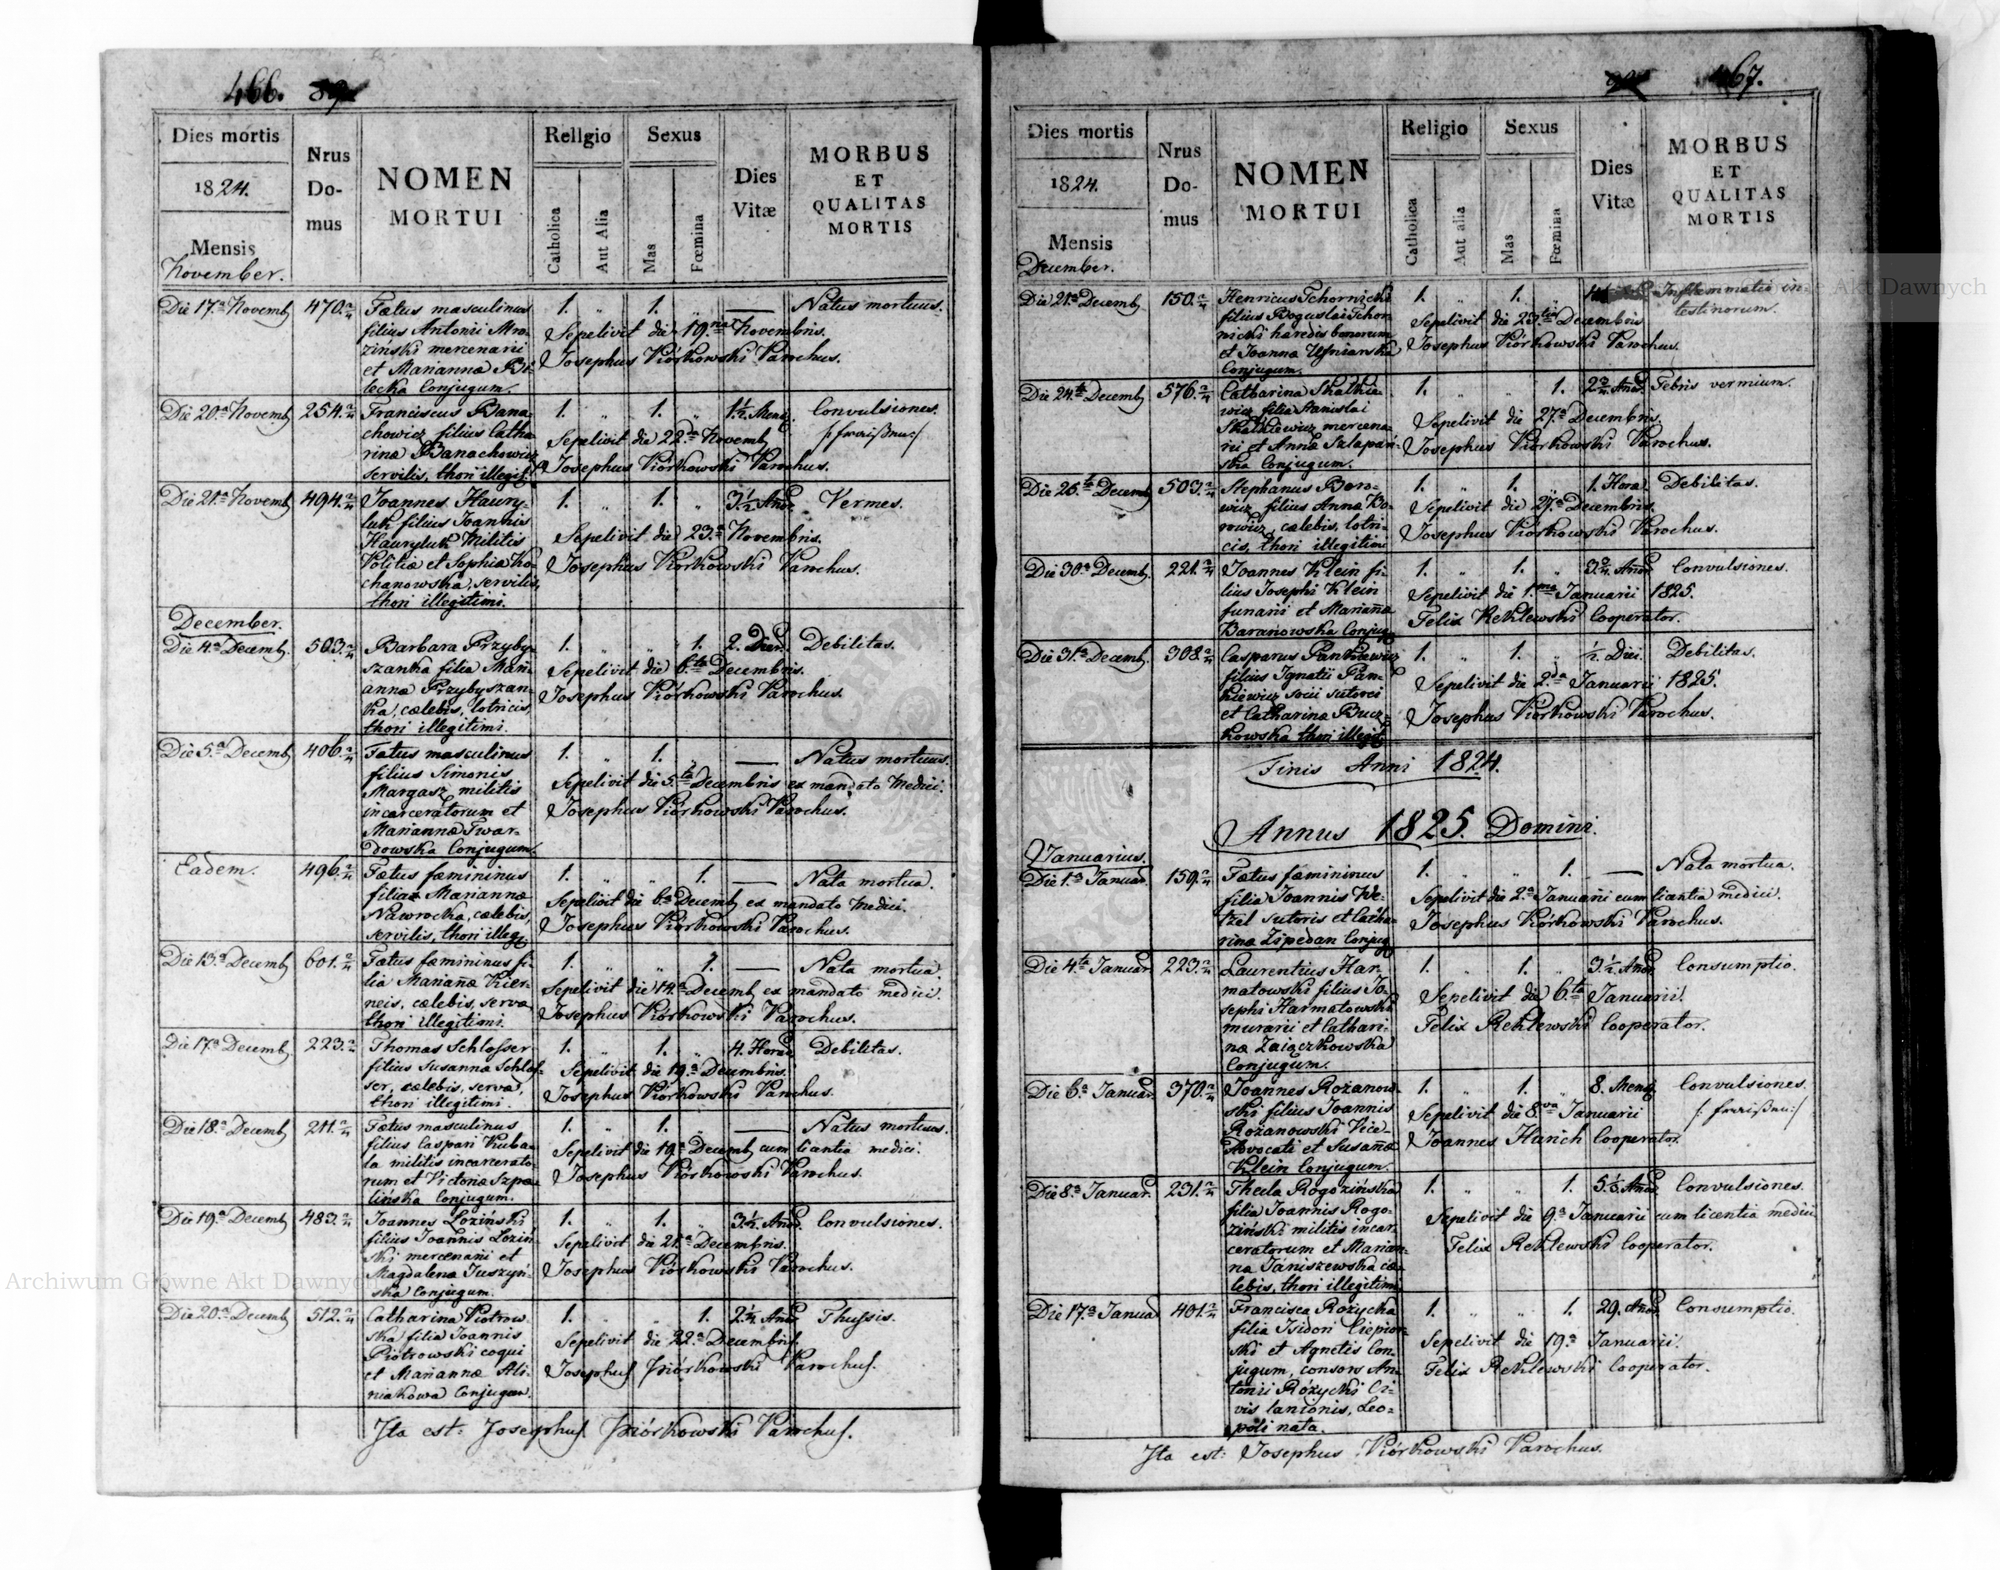 466.
Dies mortis
1824.
Mensis
November.
Nrus
Do-
mus
NOMEN
MORTUI
Religio
Catholica
Aut Alia
Sexus
Mas
Fœmina
Dies
Vitæ
MORBUS
ET
QUALITAS
MORTIS
Die 17.a Novemb. 470.
Fætus masculinus
filius Antonii Mro-
ziński mercenarii
et Mariannæ Bi-
lecka Conjugum.
1. " 1. " — Natus mortuus.
Sepelivit die 19.na Novembris.
Josephus Piórkowski Parochus.
Die 20.a Novemb. 254.
Franciscus Bana-
chowicz filius Catha-
rinæ Banachowicz
servilis, thori illegit.
1. " 1. " 1½ Mens. Convulsiones.
/:fraißen:/
Sepelivit die 22.a Novemb.
Josephus Piórkowski Parochus.
Die 21.a Novemb. 494.
Joannes Hawry-
luk filius Joannis
Hawryluk Militis
Politiæ et Sophiæ Ko-
chanowska, servilis,
thori illegitimi.
1. " 1. " 3½ Anor. Vermes.
Sepelivit die 23.a Novembris.
Josephus Piórkowski Parochus.
December.
Die 4.a Decemb. 503.
Barbara Przyby-
szanka filia Mari-
annæ Przybyszan-
ka, cælebis, lotricis,
thori illegitimi.
1. " " 1. 2. Dier. Debilitas.
Sepelivit die 6.ta Decembris.
Josephus Piórkowski Parochus.
Die 5.a Decemb. 406.
Fætus masculinus
filius Simonis
Margasz militis
incarceratorum et
Mariannæ Twar-
dowska Conjugum.
1. " 1. — Natus mortuus.
Sepelivit die 5.ta Decembris ex mandato Medici.
Josephus Piórkowski Parochus.
Eadem. 496.
Fætus fæmininus
filia Mariannæ
Nawrocka, cælebis,
servilis, thori illeg.
1. " " 1. — Nata mortua.
Sepelivit die 6.a Decemb. ex mandato Medici.
Josephus Piórkowski Parochus.
Die 13.a Decemb. 601.
Fætus fæmininus fi-
lia Marianæ Kier-
neis, cælebis, servæ
thori illegitimi.
1. " " 1. — Nata mortua.
Sepelivit die 14.a Decemb. ex mandato medici.
Josephus Piórkowski Parochus.
Die 17.a Decemb. 223.
Thomas Schlosser
filius Susannæ Schlos-
ser, cælebis, servæ,
thori illegitimi.
1. " 1. " 4. Horar. Debilitas.
Sepelivit die 19.a Decembris.
Josephus Piórkowski Parochus.
Die 18.a Decemb. 211.
Fætus masculinus
filius Caspari Kuba-
la militis incarcerato-
rum et Victoriæ Szpa-
lińska Conjugum.
1. " 1. — Natus mortuus.
Sepelivit die 19.a Decemb. cum licentia medici.
Josephus Piórkowski Parochus.
Die 19.a Decemb. 483.
Joannes Loziński
filius Joannis Loziń-
ski mercenarii et
Magdalena Juszyń-
ska Conjugum.
1. " 1. " 3½ Anor. Convulsiones.
Sepelivit die 21.a Decembris.
Josephus Piórkowski Parochus.
Die 20.a Decemb. 512.
Catharina Piotrow-
ska filia Joannis
Piotrowski coqui
et Mariannæ Ali-
niakowa Conjugum.
1. " " 1. Anor. Thussis.
Sepelivit die 22.a Decembris
Josephus Piórkowski Parochus.
Ita est: Josephus Piórkowski Parochus.
467.
Dies mortis
1824.
Mensis
December.
Nrus
Do-
mus
NOMEN
MORTUI
Religio
Catholica
Aut alia
Sexus
Mas
Fœmina
Dies
Vitæ
MORBUS
ET
QUALITAS
MORTIS
Die 21.a Decemb. 150.
Henricus Tchornicki
filius Boguslai Tchor-
nicki hæredis bonorum
et Joannæ Ufniarska
Conjugum.
1. " 1. " Inflammatio in-
testinorum.
Sepelivit die 23.tia Decembris
Josephus Piórkowski Parochus.
Die 24.ta Decemb. 576.
Catharina Skalkie-
wicz filia Stanislai
Skalkiewicz mercena-
rii et Annæ Salapań-
ska Conjugum.
1. " " 1. Anor. Febris vermium.
Sepelivit die 27.a Decembris.
Josephus Piórkowski Parochus.
Die 25.ta Decemb. 503.
Stephanus Boro-
wicz filius Annæ Bo-
rowicz, cælebis, lotri-
cis, thori illegitimi
1. " 1. " 1. Hora. Debilitas.
Sepelivit die 27.a Decembris.
Josephus Piórkowski Parochus.
Die 30.a Decemb. 221.
Joannes Klein fi-
lius Josephi Klein
funarii et Mariannæ
Baranowska Conjug.
1. " 1. " Anor. Convulsiones.
Sepelivit die 1.ma Januarii 1825.
Felix Rehlewski Cooperator.
Die 31.a Decemb. 308.
Casparus Pankiewicz
filius Ignatii Pan-
kiewicz socii sutorei
et Catharina Bucz-
kowska thori illegit.
1. " 1. " ½ Diei. Debilitas.
Sepelivit die 2.da Januarii 1825.
Josephus Piórkowski Parochus.
Finis Anni 1824.
Annus 1825. Domini.
Januarius.
Die 1.a Januar. 159.
Fætus fæmininus
filia Joannis We-
tzel sutoris et Catha-
rinæ Zipedan Conjug.
1. " " 1. — Nata mortua.
Sepelivit die 2.a Januarii cum licentia medici.
Josephus Piórkowski Parochus.
Die 4.ta Januar. 223.
Laurentius Har-
matowski filius Jo-
sephi Harmatowski
murarii et Cathari-
næ Zaiączkowska
Conjugum.
1. " 1. " 3½ Anor. Consumptio.
Sepelivit die 6.ta Januarii.
Felix Rehlewski Cooperator.
Die 6.a Januar. 370.
Joannes Rozanow-
ski filius Joannis
Rozanowski Vice-
Advocati et Susannæ
Klein Conjugum.
1. " 1. " 8. Mens. Convulsiones.
/:fraißen:/
Sepelivit die 8.va Januarii
Joannes Hürich Cooperator.
Die 8.a Januar. 231.
Thecla Rogozińska
filia Joannis Rogo-
ziński militis incar-
ceratorum et Marian-
na Janiszewska cæ-
lebis, thori illegitimi.
1. " " 1. Anor. Convulsiones.
Sepelivit die 9.a Januarii cum licentia medici
Felix Rehlewski Cooperator.
Die 17.a Januar. 401.
Francisca Rozycka
filia Isidori Ciepior-
ski et Agnetis Con-
jugum, consors An-
tonii Różycki Ci-
vis lanionis, Leo-
poli nata.
1. " " 1. 29. Anor. Consumptio.
Sepelivit die 19.a Januarii.
Felix Rehlewski Cooperator.
Ita est: Josephus Piórkowski Parochus.
Archiwum Główne Akt Dawnych
Akt Dawnych